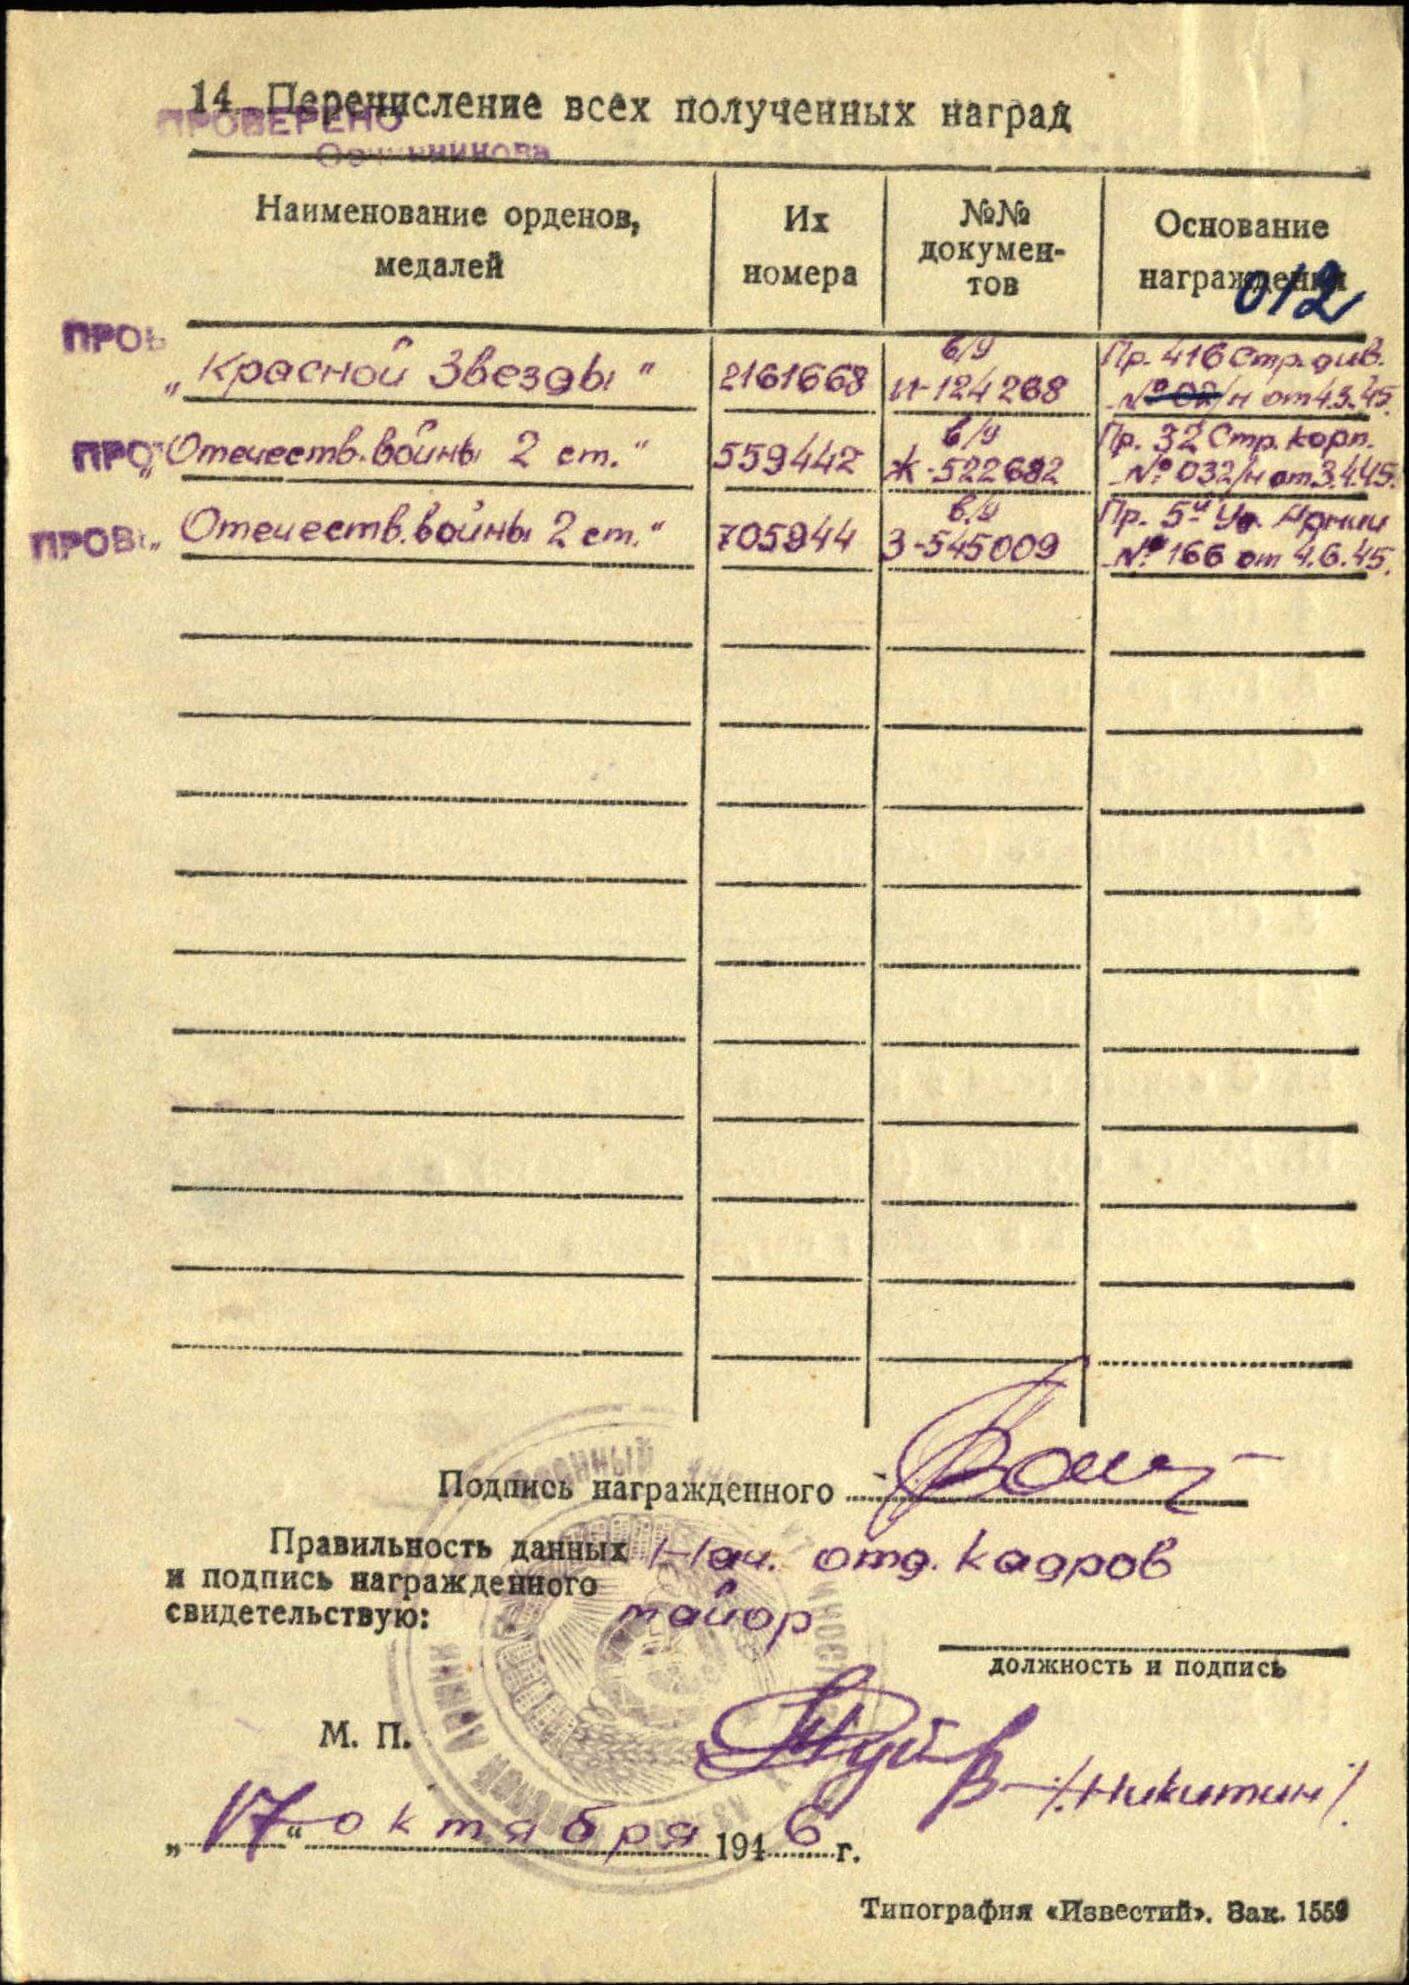 14. Перечисление всех полученных наград
ПРОВЕРЕНО
Наименование орденов, медалей
Их номера
№№ докумен-тов
Основание награждения
012
ПРОВ
„Красной Звезды“
2161668
в/у
И-124268
Пр. 416 Стр. див.
№ 02/н от 4.3.45
ПРО
„Отечеств. войны 2 ст.“
559442
в/у
Ж-522682
Пр. 32 Стр. корп.
№ 032/н от 3.4.45.
ПРОВ
„Отечеств. войны 2 ст.“
705944
в/у
З-545009
Пр. 5й Уд. Армии
№ 166 от 4.6.45.
Подпись награжденного
Правильность данных
и подпись награжденного
свидетельствую:
Нач. отд. кадров
майор
должность и подпись
М. П.
/Никитин/
„17“ октября 1946 г.
Типография «Известий». Зак. 1559